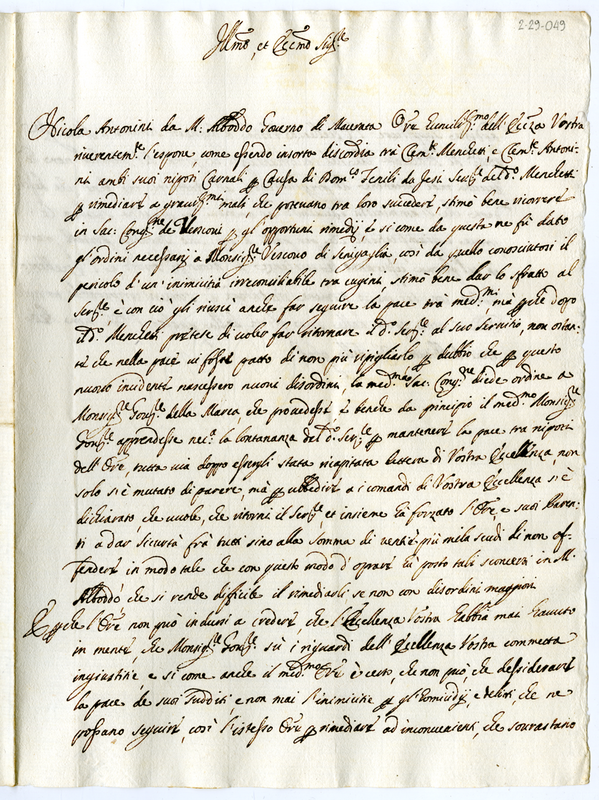 2-29-049
Ill.mo, et Ecc.mo Sig.re
Nicola Antonini da M. Alboddo Governo di Macerata Ore humiliss.mo dell'Ecc.za Vostra
riverentem.te l'espone come essendo insorta discordia trà Clem.te Mencheti, e Clem.te Antoni-
ni ambi suoi nipoti Carnali p Causa di Dom.co Fenili da Jesi Serv.re del d.o Mencheti
p rimediare a gravis.mi mali, che potevano tra loro succedere, stimò bene ricorrere
in Sac. Cong.ne de Vesconi p gl'opportuni rimedij e si come da questa ne fù dato
gl'ordini necessarij a Monsig.re Vescovo di Senigaglia, così da quello conosciutosi il
pericolo d'un'inimicitia irreconciliabile tra cugini, stimò bene dar lo sfratto al
Ser.re e con ciò gli riuscì anche far seguire la pace trà med.mi, mà pche dopo
il d.o Mencheti pretese di voler far ritornare il d.o Ser.re al suo servitio, non ostan-
te che nella pace vi fosse patto di non più ripigliarlo p dubbio che p questo
nuovo incidente nascessero nuovi disordini, la med.ma Sac. Cong.ne diede ordine a
Monsig.re Gov.re della Marca che provedesse e benche da principio il med.mo Monsig.re
Gov.re apprendesse nec.a la lontananza del d.o Ser.re p mantenere la pace tra nipoti
dell'Ore, tutta via doppo essergli stata ricapitata lettera di Vostra Eccellenza, non
solo si è mutato di parere, mà p ubbidire a i comandi di Vostra Eccellenza si è
dichiarato, che vuole, che ritorni il Ser.re et insieme hà forzato l'Ore e suoi Paren-
ti a dar sicurtà frà tutti sino alla somma di venti e più mila scudi di non of-
fendere in modo tale che con questo modo d'oprare hà posto tali sconcerti in M.
Alboddo che si rende difficile il rimediarli se non con disordini maggiori
E pche l'Ore non può indursi a credere, che l'Eccellenza Vostra habbia mai havuto
in mente, che Monsig.re Gov.re sù i riguardi dell'Eccellenza Vostra commetta
ingiustitie e si come anche il med.mo Ore è certo, che non può che desiderare
la pace de suoi sudditi e non mai l'inimicitie p gl'homicidij, e delitti, che ne
possano seguire, così l'istesso Ore p rimediare ad inconvenienti, che sovrastano